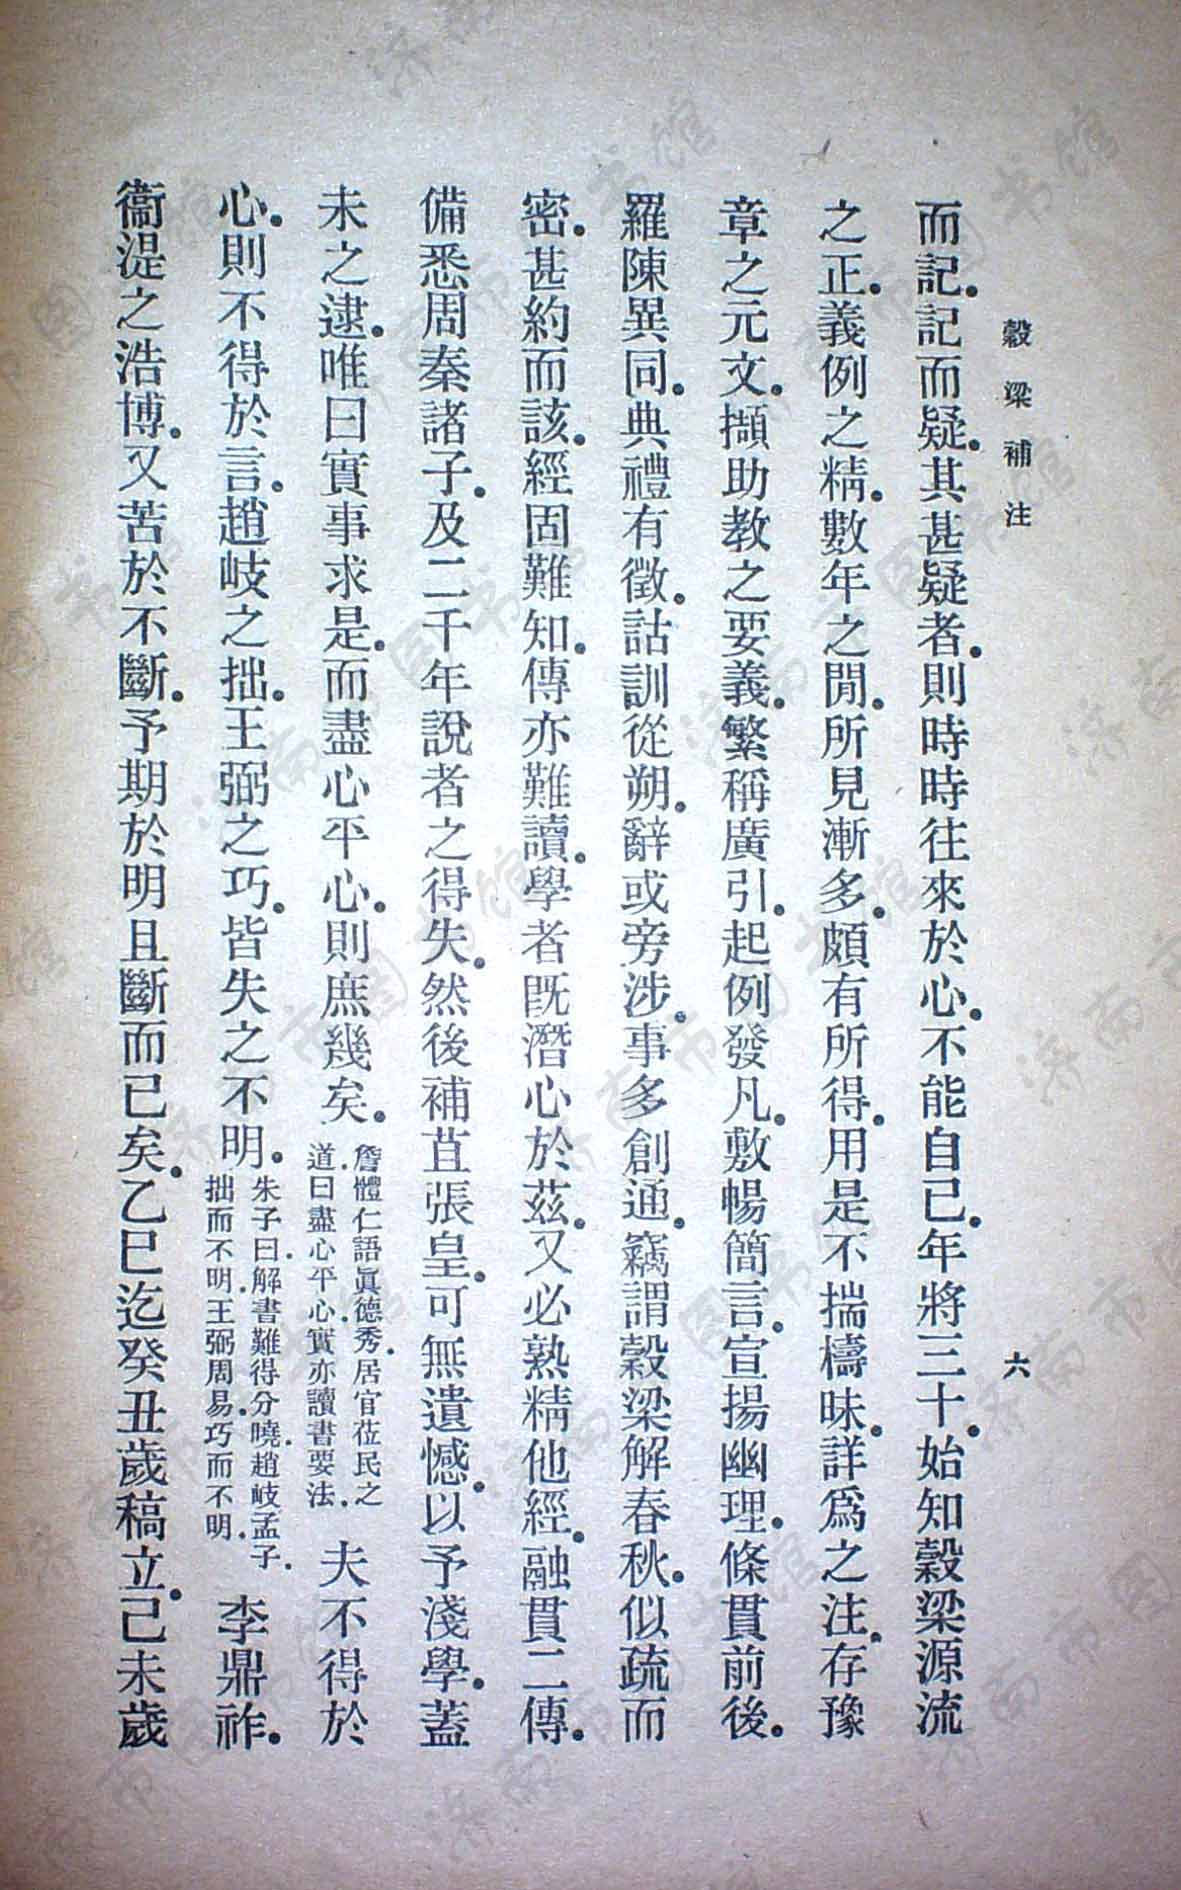 穀梁補注
六
而記。記而疑。其甚疑者。則時時往來於心。不能自已。年將三十。始知穀梁源流
之正。義例之精。數年之閒。所見漸多。頗有所得。用是不揣檮昧。詳爲之注。存豫
章之元文。擷助教之要義。繁稱廣引。起例發凡。敷暢簡言。宣揚幽理。條貫前後。
羅陳異同。典禮有徵。詁訓從朔。辭或旁涉。事多創通。竊謂穀梁解春秋。似疏而
密。甚約而該。經固難知。傳亦難讀。學者既潛心於茲。又必熟精他經。融貫二傳。
備悉周秦諸子。及二千年說者之得失。然後補苴張皇。可無遺憾。以予淺學。蓋
未之逮。唯曰實事求是。而盡心平心。則庶幾矣。
詹體仁語眞德秀。居官莅民之
道。曰盡心平心。實亦讀書要法。
夫不得於
心。則不得於言。趙岐之拙。王弼之巧。皆失之不明。
朱子曰。解書難得分曉。趙岐孟子。
拙而不明。王弼周易。巧而不明。
李鼎祚。
衞湜之浩博。又苦於不斷。予期於明且斷而已矣。乙巳迄癸丑歲稿立。己未歲
济南市图书馆